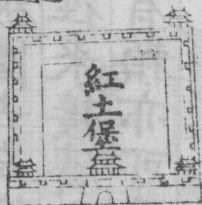 紅土堡